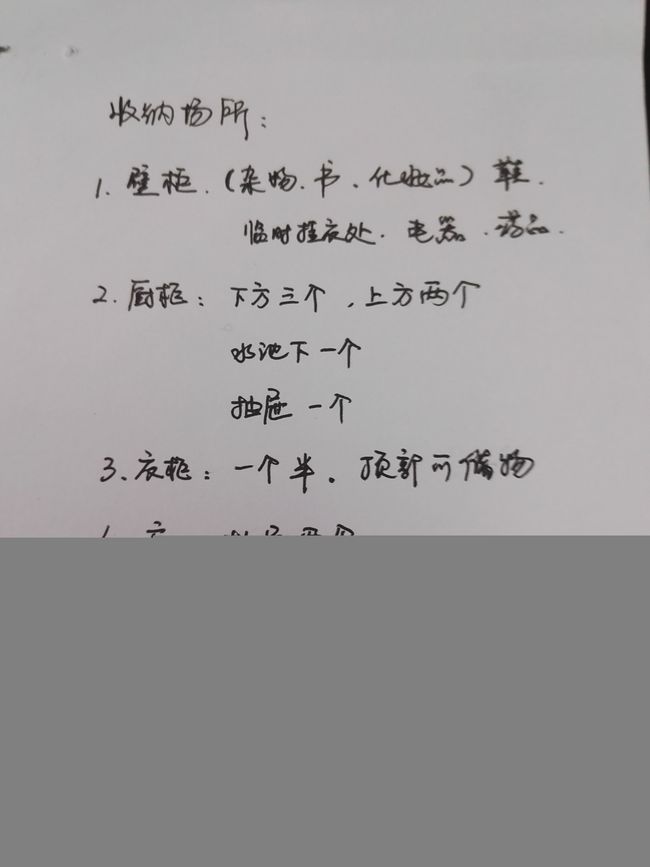 收纳场所：
1. 壁柜.（杂物.书.化妆品）鞋.
临时挂衣处.电器.药品.
2. 厨柜：下方三个，上方两个
水池下一个
抽屉一个
3. 衣柜：一个半.顶部可储物